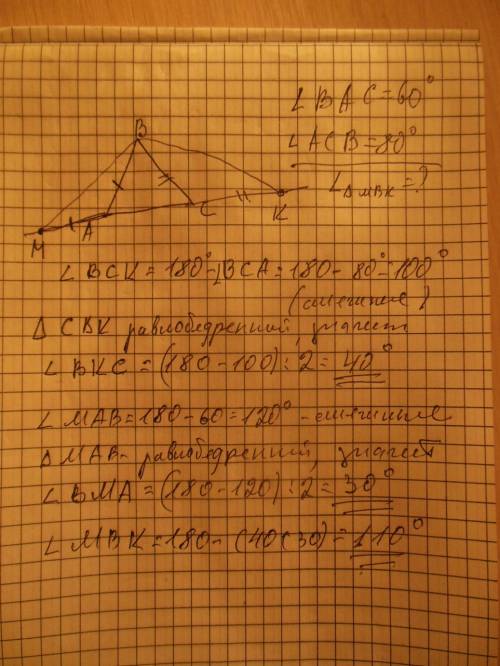 ∠BAC=60°
∠ACB=80°
∠ΔMBK=?
B
M
A
C
K
∠BCK=180°-∠BCA=180-80°=100°
(смежные)
ΔCBK равнобедренный, значит
∠BKC=(180-100):2=40°
∠MAB=180-60=120°-смежные
ΔMAB-равнобедренный, значит
∠BMA=(180-120):2=30°
∠MBK=180-(40+30)=110°